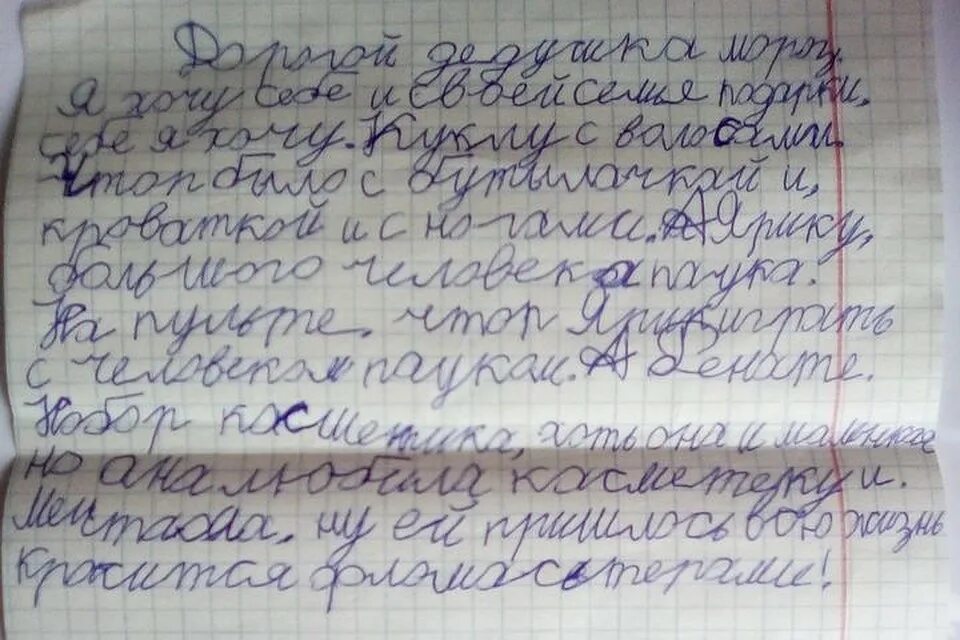 Дорогой дедушка мороз.
Я хочу себе и своей семье подарки.
себе я хочу. Куклу с волосами.
Чтоп было с бутылачкай и,
кроваткой и с ногами. А Ярику,
большого человека паука.
На пульте. чтоп Ярик играть
с человеком пауком. А Ренате.
Набор касметика, хоть она и маленкая
но ана любила касметеку и.
Мечтаола. ну ей пришлось всю жизнь
красится фломастерами!